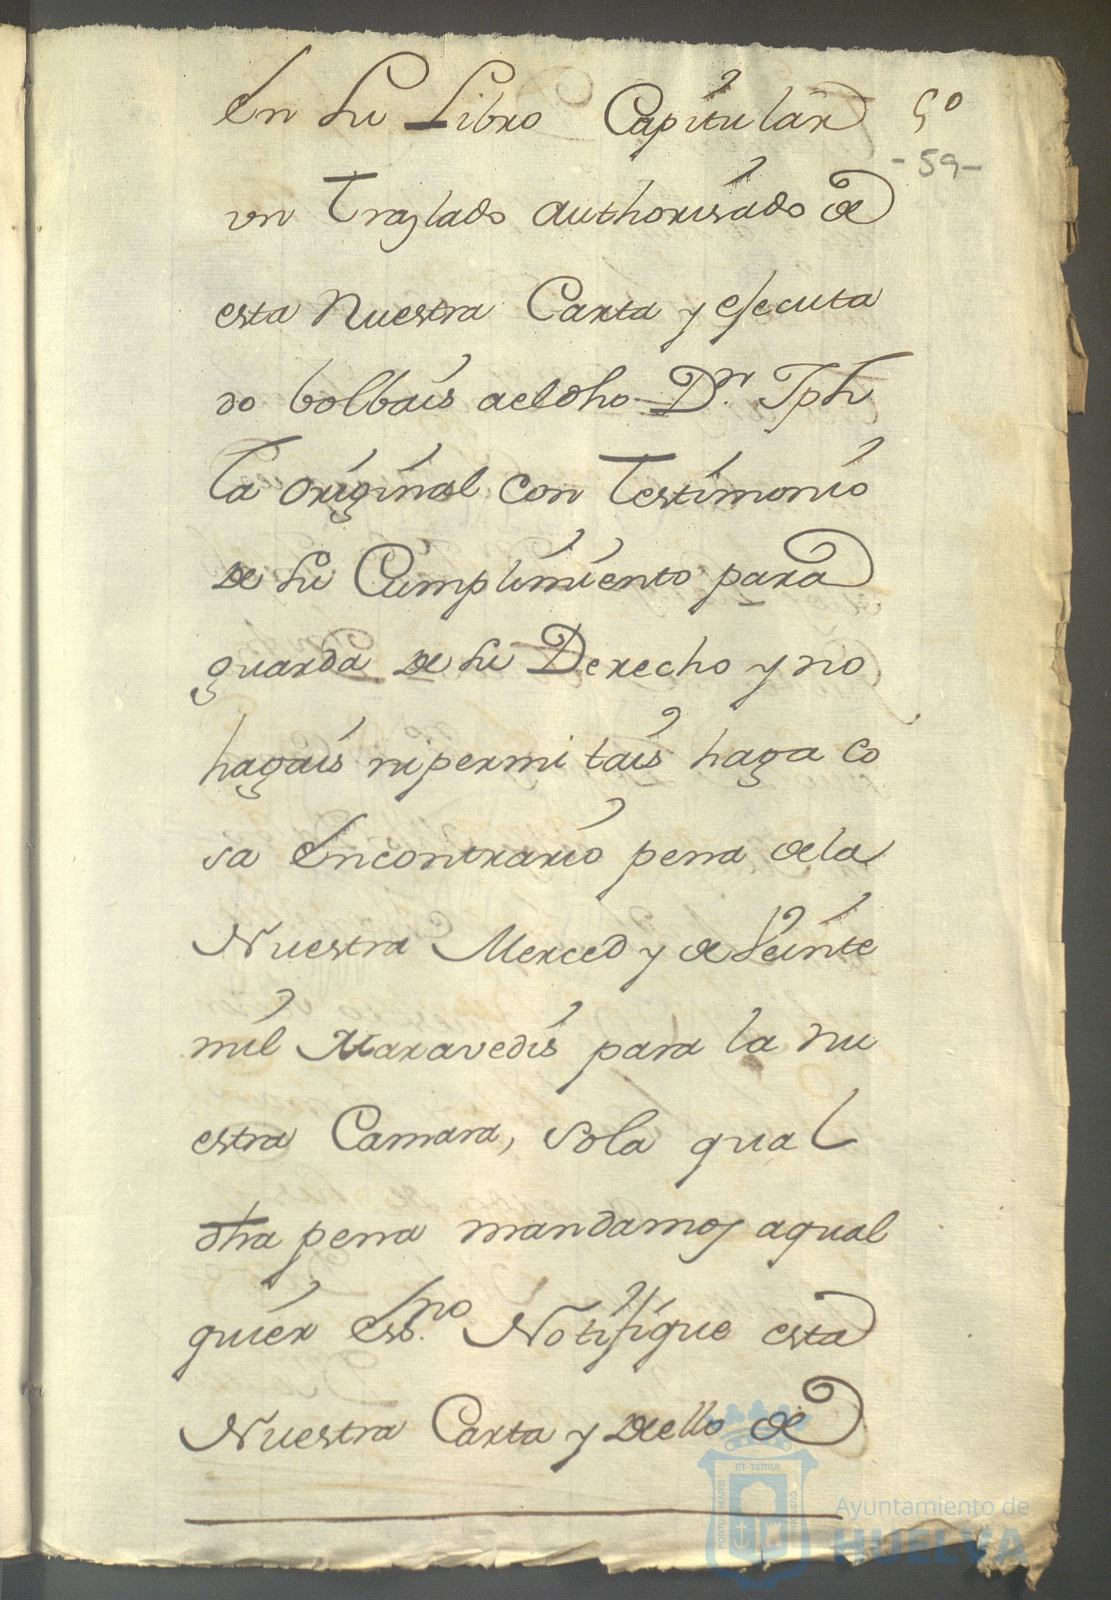 en su Libro Capitular
5º
-59-
vn Traslado authorisado de
esta Nuestra Carta y ejecuta
do bolbais ael dho Dn. Jph
la original con Testimonio
de su Cumplimiento para
guarda de su Derecho y no
hagais ni permitais haga co
sa en contrario pena de la
Nuestra Merced y de Veinte
mil Maravedis para la nu
estra Camara, sola qual
dha pena mandamos a qual
quier essno. Notifique esta
Nuestra Carta y de ello de
ET TERRÆ
Ayuntamiento de
HUELVA